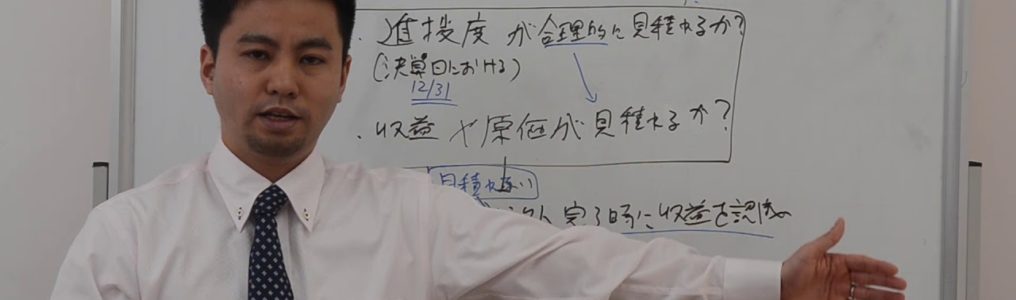 ・進捗度が合理的に見積れるか?
(決算日における)
12/31
・収益や原価が見積れるか?
見積れない
完了時に収益を認識